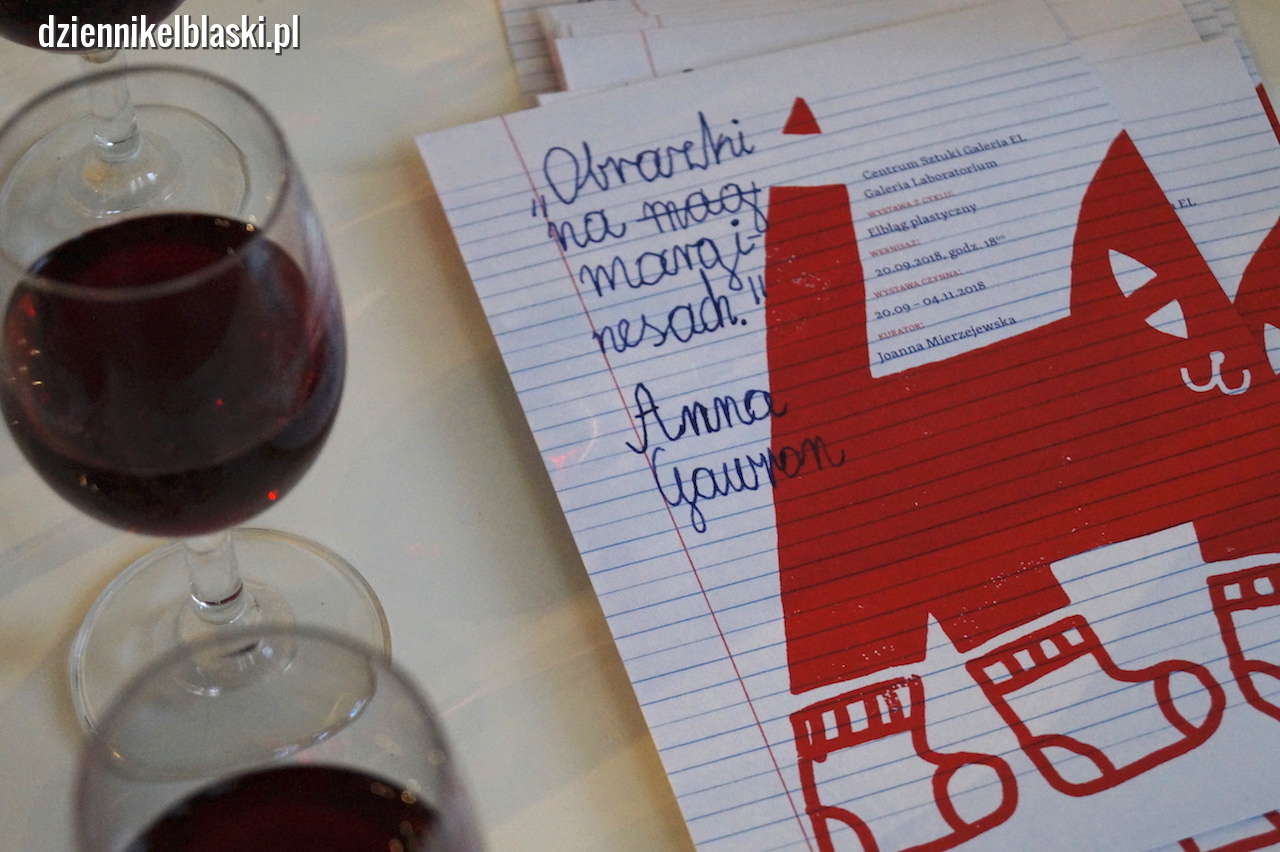 dziennikelblaski.pl
„Obrazki
na mag
margi-
nesach."
Anna
Gawron
Centrum Sztuki Galeria EL
Galeria Laboratorium
WYSTAWA Z CYKLU:
Elbląg plastyczny
WERNISAŻ:
20.09.2018, godz. 18⁰⁰
WYSTAWA CZYNNA:
20.09 – 04.11.2018
KURATOR:
Joanna Mierzejewska
EL